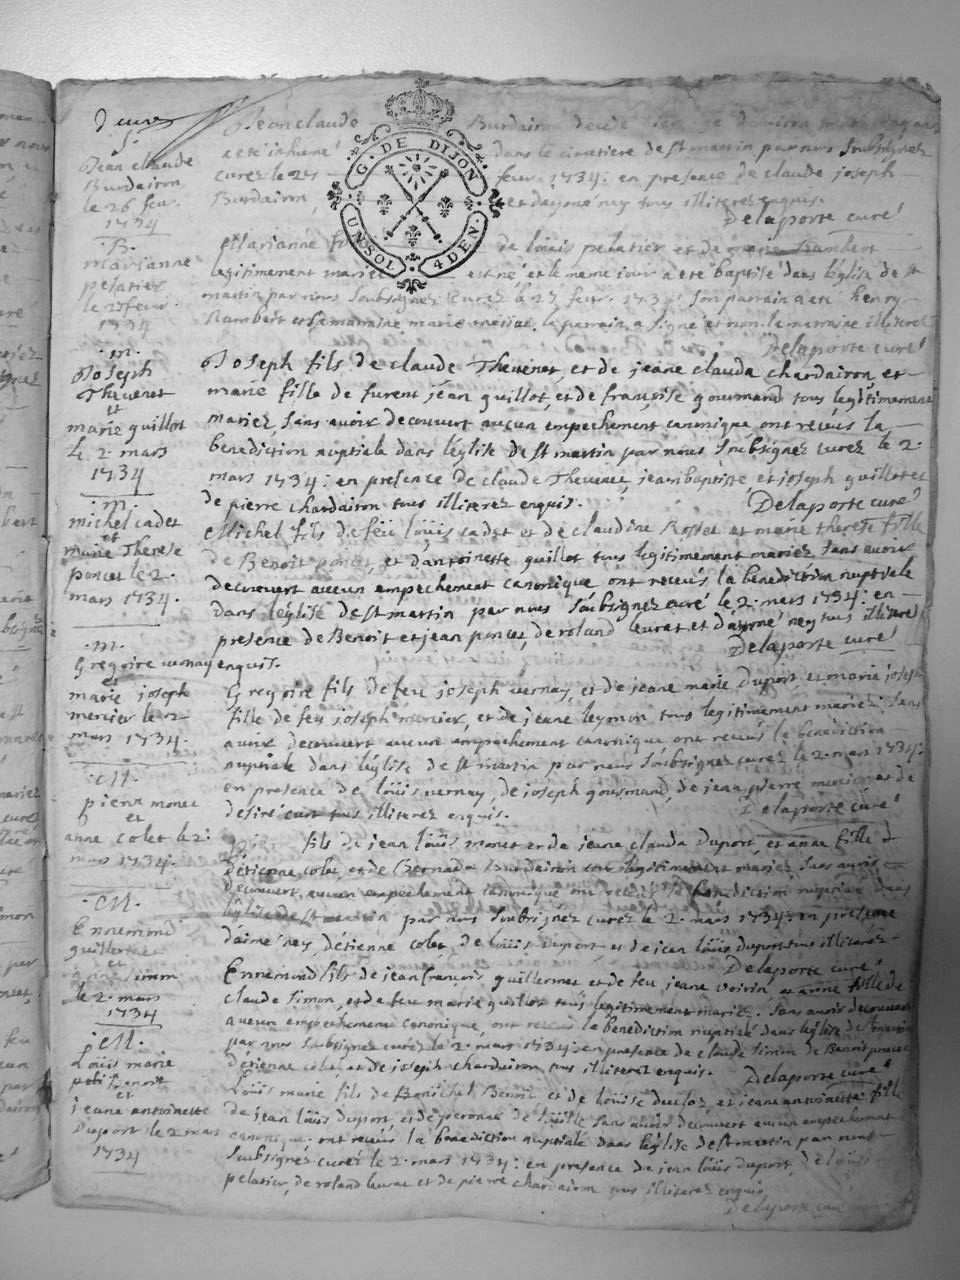 S.
Jean claude
Burdairon
le 26 feu.
1734
Jean claude Burdairon
a eté inhumé dans le cimetiere de st martin par nous soubsignez
curez le 27 feur. 1734: en presence de claude joseph
Burdairon, et daymé ney tous illiterez enquis.
Delaporte curé
G. DE DIJON
UN SOL 4 DEN.
B.
marianne
pelatier
le 27 feur.
1734
Marianne de loüis pelatier et de marie Rambert
legitimement mariez est né, et le meme iour a eté baptisé dans léglise de st
martin par nous soubsignez curez le 27 feur. 1734: son parrain a eté henry
Rambert et sa marraine marie, le parrain a signé et non la marraine illiteré
Delaporte curé
m.
Joseph
Thevenet
et
marie guillot
le 2. mars
1734
Joseph fils de claude Thevenet, et de jeane clauda chardairon, et
marie fille de furent jean guillot, et de françoise gourmand tous legitimement
mariez, sans auoir decouvert aucun empechement canonique ont receus la
benediction nuptiale dans léglise de st martin par nous soubsignez curez le 2.
mars 1734: en presence de claude Thevenet, jean baptiste, et joseph guillot et
de pierre chardairon tous illiterez enquis. Delaporte curé
m.
michel cadet
et
marie Therese
poncet le 2.
mars 1734.
Michel fils de feu loüis cadet et de claudine Rosset et marie therese fille
de Benoit poncet, et dantoinette guillot tous legitimement mariez sans auoir
decouvert aucun empechement canonique ont receus la benediction nuptiale
dans léglise de st martin par nous soubsignez curé le 2. mars 1734: en
presence de Benoit et jean poncet, de roland leurat et daymé ney tous illiterez
enquis. Delaporte curé
m.
Gregoire vernay
et
marie joseph
mercier le 2
mars 1734.
Gregoire fils de feu joseph vernay, et de jeane marie Duport, et marie joseph
fille de feu joseph mercier, et de jeane leymon tous legitimement mariez sans
auoir decouvert aucun empechement canonique ont receus la benediction
nuptiale dans léglise de st martin par nous soubsignez curez le 2. mars 1734:
en presence de loüis vernay, de joseph gourmand, de jean pierre mercier et de
desiré curt tous illiterez enquis. Delaporte curé
M.
pierre monet
et
anne colet le 2:
mars 1734.
fils de jean loüis monet et de jeane clauda duport, et anne fille d
étienne colet, et de Bernarda Burdairon tous legitimement mariez, sans auoir
decouvert, aucun empechement canonique ont receus la benediction nuptiale dans
léglise de st martin par nous soubsignez curez le 2. mars 1734: en presence
daimé ney, détienne colet, de loüis duport et de jean loüis duport tous illiterez
Delaporte curé
M.
Ennemond
guillermet
et
anne simon
le 2. mars
1734
Ennemond fils de jean françois guillermet et de feu jeane voirin et anne fille de
claude simon, et de feu marie guillot tous legitimement mariez. sans auoir decouvert
aucun empechement canonique, ont receus la benediction nuptiale dans léglise de st martin
par nous soubsignez curez le 2. mars 1734: en presence de claude simon de Benoit poncet
détienne colet et de joseph chardairon tous illiterez enquis. Delaporte curé
M.
Loüis marie
Benoit
et
jeane antoinette
Duport le 2 mars
1734
Loüis marie fils de Benoit et de loüise duclos, et jeane antoinette fille
de jean loüis duport, et de peronne de sans auoir decouvert aucun empechement
canonique. ont receus la benediction nuptiale dans léglise de st martin par nous
soubsignez curez le 2. mars 1734: en presence de jean loüis duport, de loüis
pelatier, de roland leurat et de pierre chardairon tous illiterez enquis.
Delaporte curé